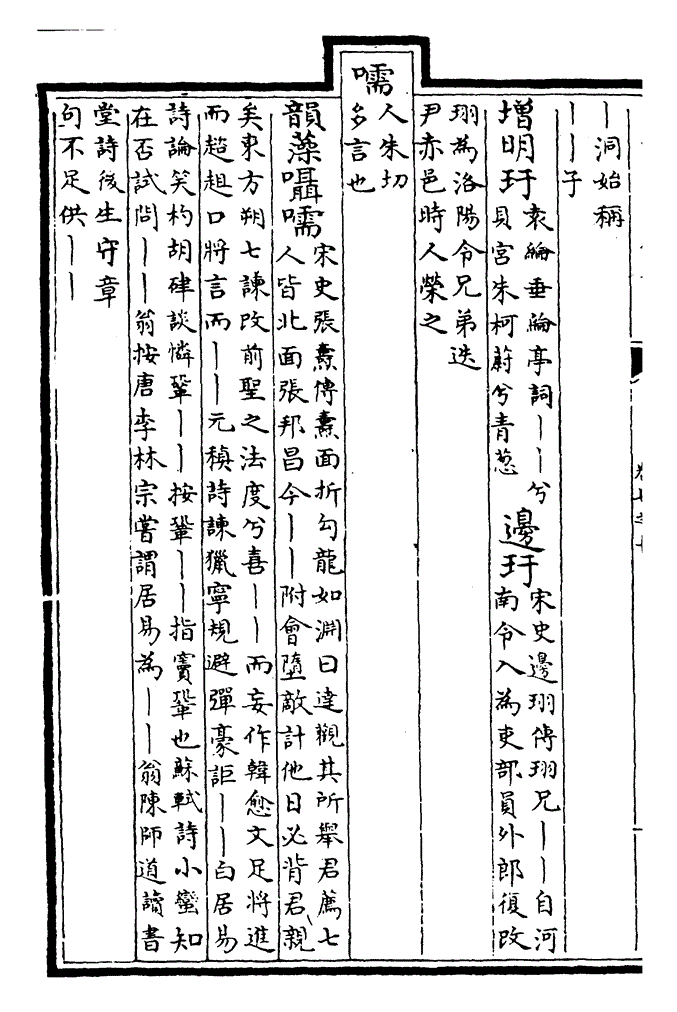 丨洞始稱
丨丨子
增明玗
袁綸垂綸亭詞丨丨兮
貝宮朱柯蔚兮青葱
邊玗
宋史邊珝傳珝兄丨丨自河
南令入為吏部員外郎復改
珝為洛陽令兄弟迭
尹赤邑時人榮之
嚅
人朱切
多言也
韻藻囁嚅
宋史張燾傳燾面折勾龍如淵曰達觀其所舉君薦七
人皆北面張邦昌今丨丨附會墮敵計他日必背君親
矣東方朔七諫改前聖之法度兮喜丨丨而妄作韓愈文足將進
而趑趄口將言而丨丨元稹詩諫獵寧規避彈豪詎丨丨白居易
詩論笑杓胡硉談憐鞏丨丨按鞏丨丨指竇鞏也蘇軾詩小蠻知
在否試問丨丨翁按唐李林宗嘗謂居易為丨丨翁陳師道讀書
堂詩後生守章
句不足供丨丨